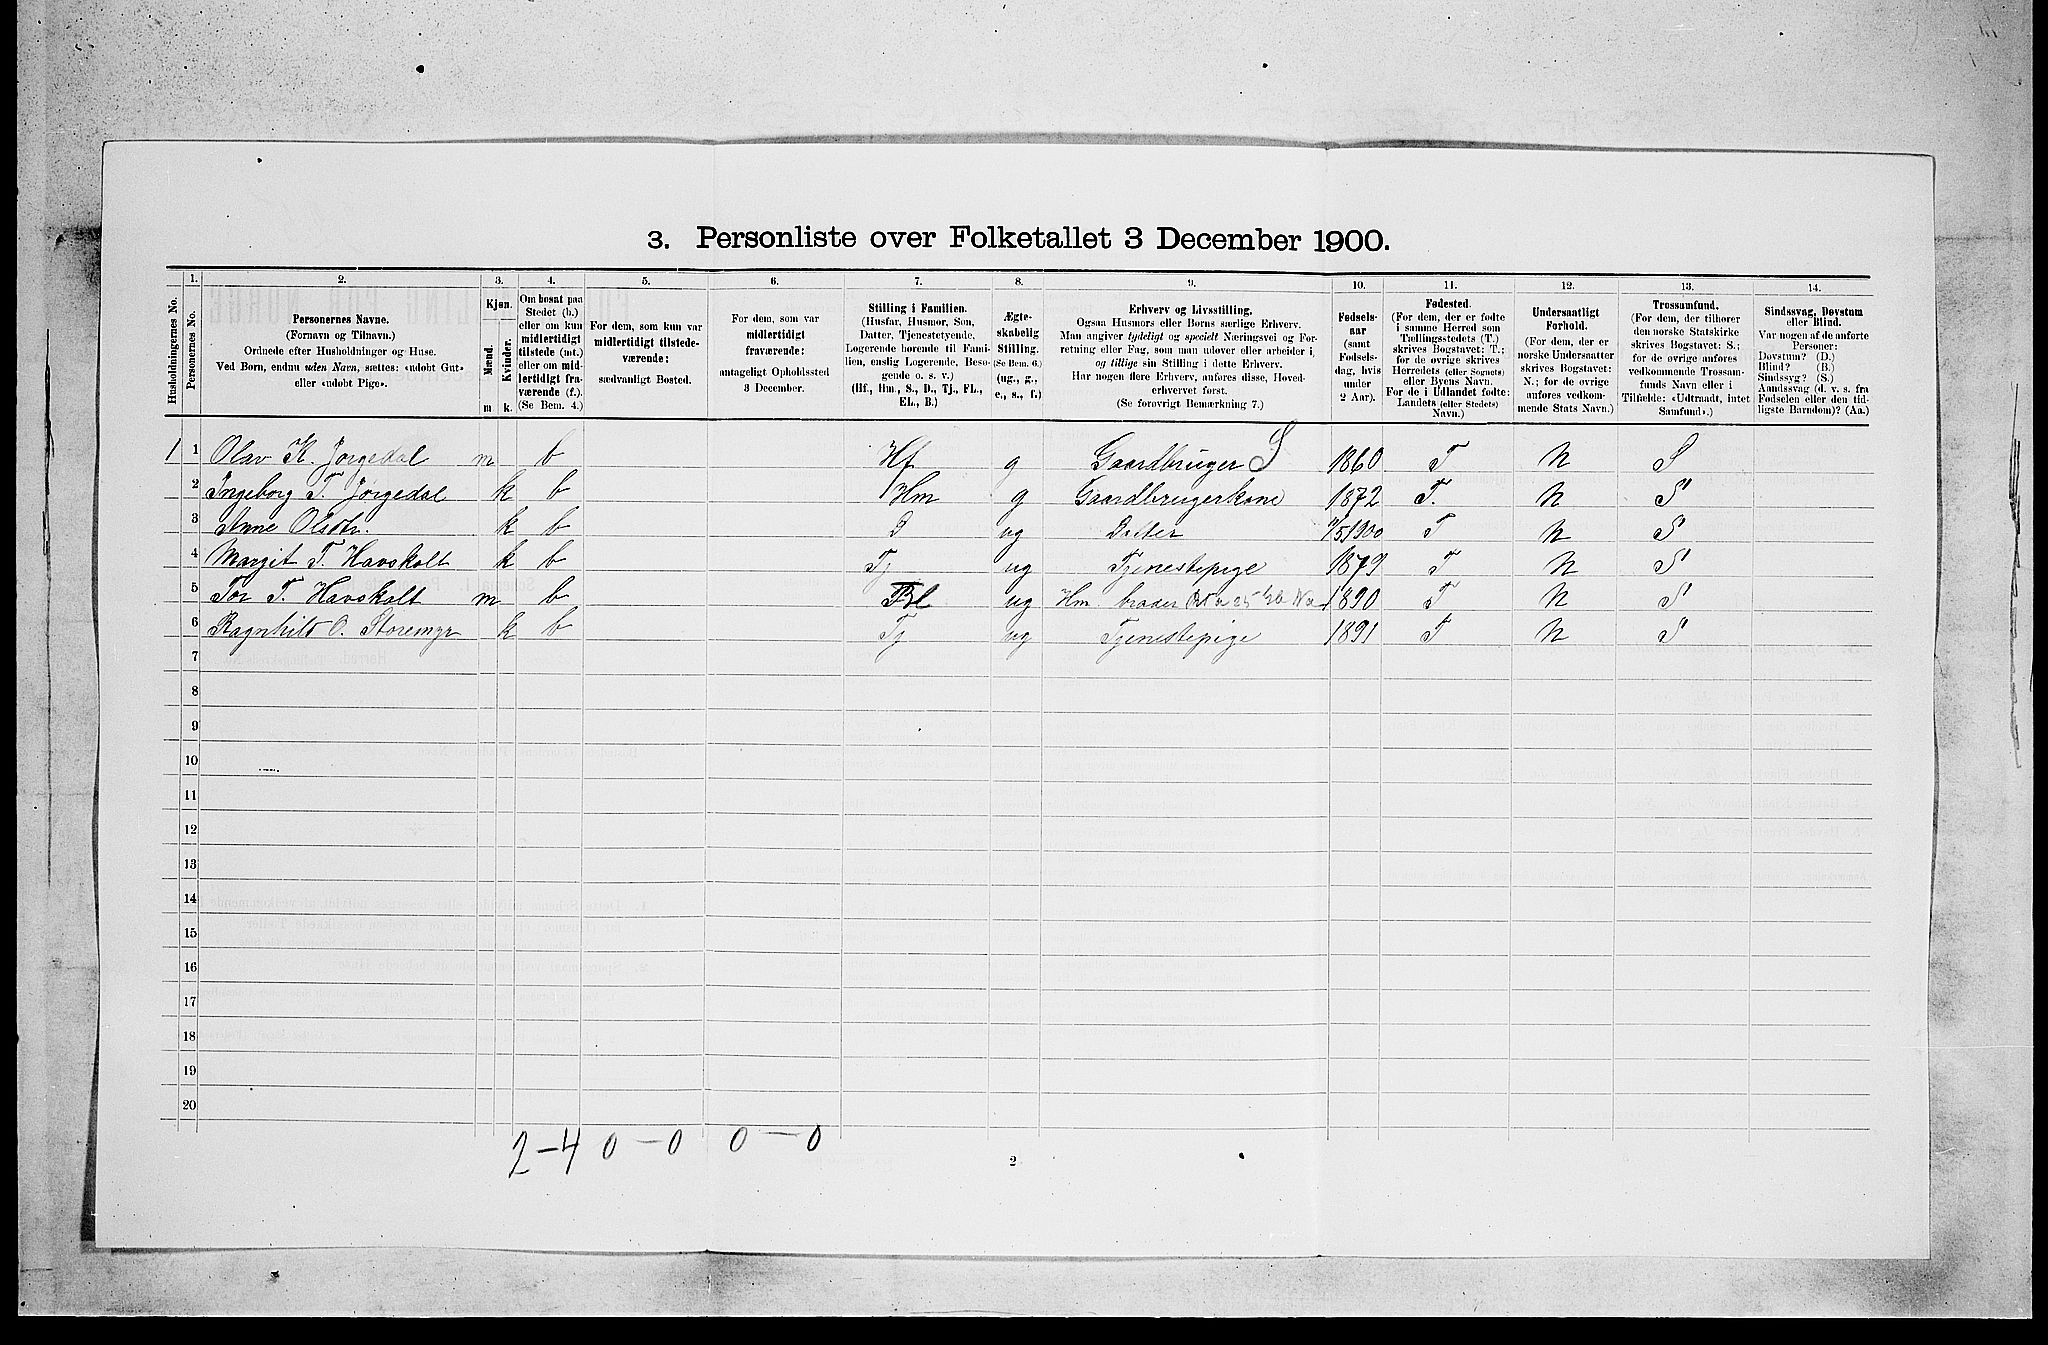 3. Personliste over Folketallet 3 December 1900.
1. 2. 3. 4. 5. 6. 7. 8. 9. 10. 11. 12. 13. 14.
Husholdningernes No.
Personernes No.
Personernes Navne.
(Fornavn og Tilnavn.)
Ordnede efter Husholdninger og Huse.
Ved Børn, endnu uden Navn, sættes: «udobt Gut»
eller «udobt Pige».
Kjøn.
Mænd.
Kvinder.
m k.
Om bosat paa
Stedet (b.)
eller om kun
midlertidigt
tilstede (mt.)
eller om mid-
lertidigt fra-
værende (f.).
(Se Bem. 4.)
For dem, som kun var
midlertidigt tilstede-
værende:
sædvanligt Bosted.
For dem, som var
midlertidigt
fraværende:
antageligt Opholdssted
3 December.
Stilling i Familien.
(Husfar, Husmor, Søn,
Datter, Tjenestetyende,
Logerende hørende til Fami-
lien, enslig Logerende, Besø-
gende o. s. v.)
(Hf., Hm., S., D., Tj., FL.,
EL., B.)
Ægte-
skabelig
Stilling.
(Se Bem. 6.)
(ug., g.,
e., s., f.)
Erhverv og Livsstilling.
Ogsaa Husmors eller Børns særlige Erhverv.
Man angiver tydeligt og specielt Næringsvei og For-
retning eller Fag, som man udøver eller arbeider i,
og tillige sin Stilling i dette Erhverv.
Har nogen flere Erhverv, anføres disse, Hoved-
erhvervet først.
(Se forøvrigt Bemærkning 7.)
Fødsels-
aar
(samt
Fødsels-
dag, hvis
under
2 Aar).
Fødested.
(For dem, der er fødte
i samme Herred som
Tællingsstedets (T.)
skrives Bogstavet: T.;
for de øvrige skrives
Herredets (eller Sognets)
eller Byens Navn.
For de i Udlandet fødte:
Landets (eller Stedets)
Navn.)
Undersaatligt
Forhold.
(For dem, der er
norske Undersaatter
skrives Bogstavet:
N.; for de øvrige
anføres vedkom-
mende Stats Navn.)
Trossamfund.
(For dem, der tilhører
den norske Statskirke
skrives Bogstavet: S.;
for de øvrige anføres
vedkommende Trossam-
funds Navn eller i
Tilfælde: «Udtraadt, intet
Samfund».)
Sindssvag, Døvstum
eller Blind.
Var nogen af de anførte
Personer:
Døvstum? (D.)
Blind? (B.)
Sindssyg? (S.)
Aandssvag (d. v. s. fra
Fødselen eller den tid-
ligste Barndom)? (Aa.)
1 1 Olav K. Jørgedal m b Hf g Gaardbruger S 1860 T N S
2 Ingeborg T. Jørgedal k b Hm g Gaardbrugerkone 1872 T. N S
3 Anne Olsdtr. k b D ug Datter 1900 T N S
4 Margit T. Havskolt k b Tj ug Tjenestepige 1879 T N S
5 Tor T. Havskolt m b ug Hm. broder 1890 T N S
6 Ragnhild O. Storemyr k b Tj ug Tjenestepige 1891 T N S
7
8
9
10
11
12
13
14
15
16
17
18
19
20
2-4 0-0 0-0
2